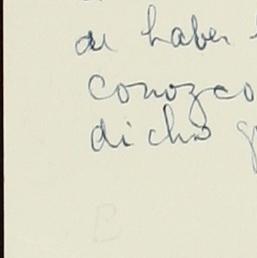 de haber
conozco
dicho g